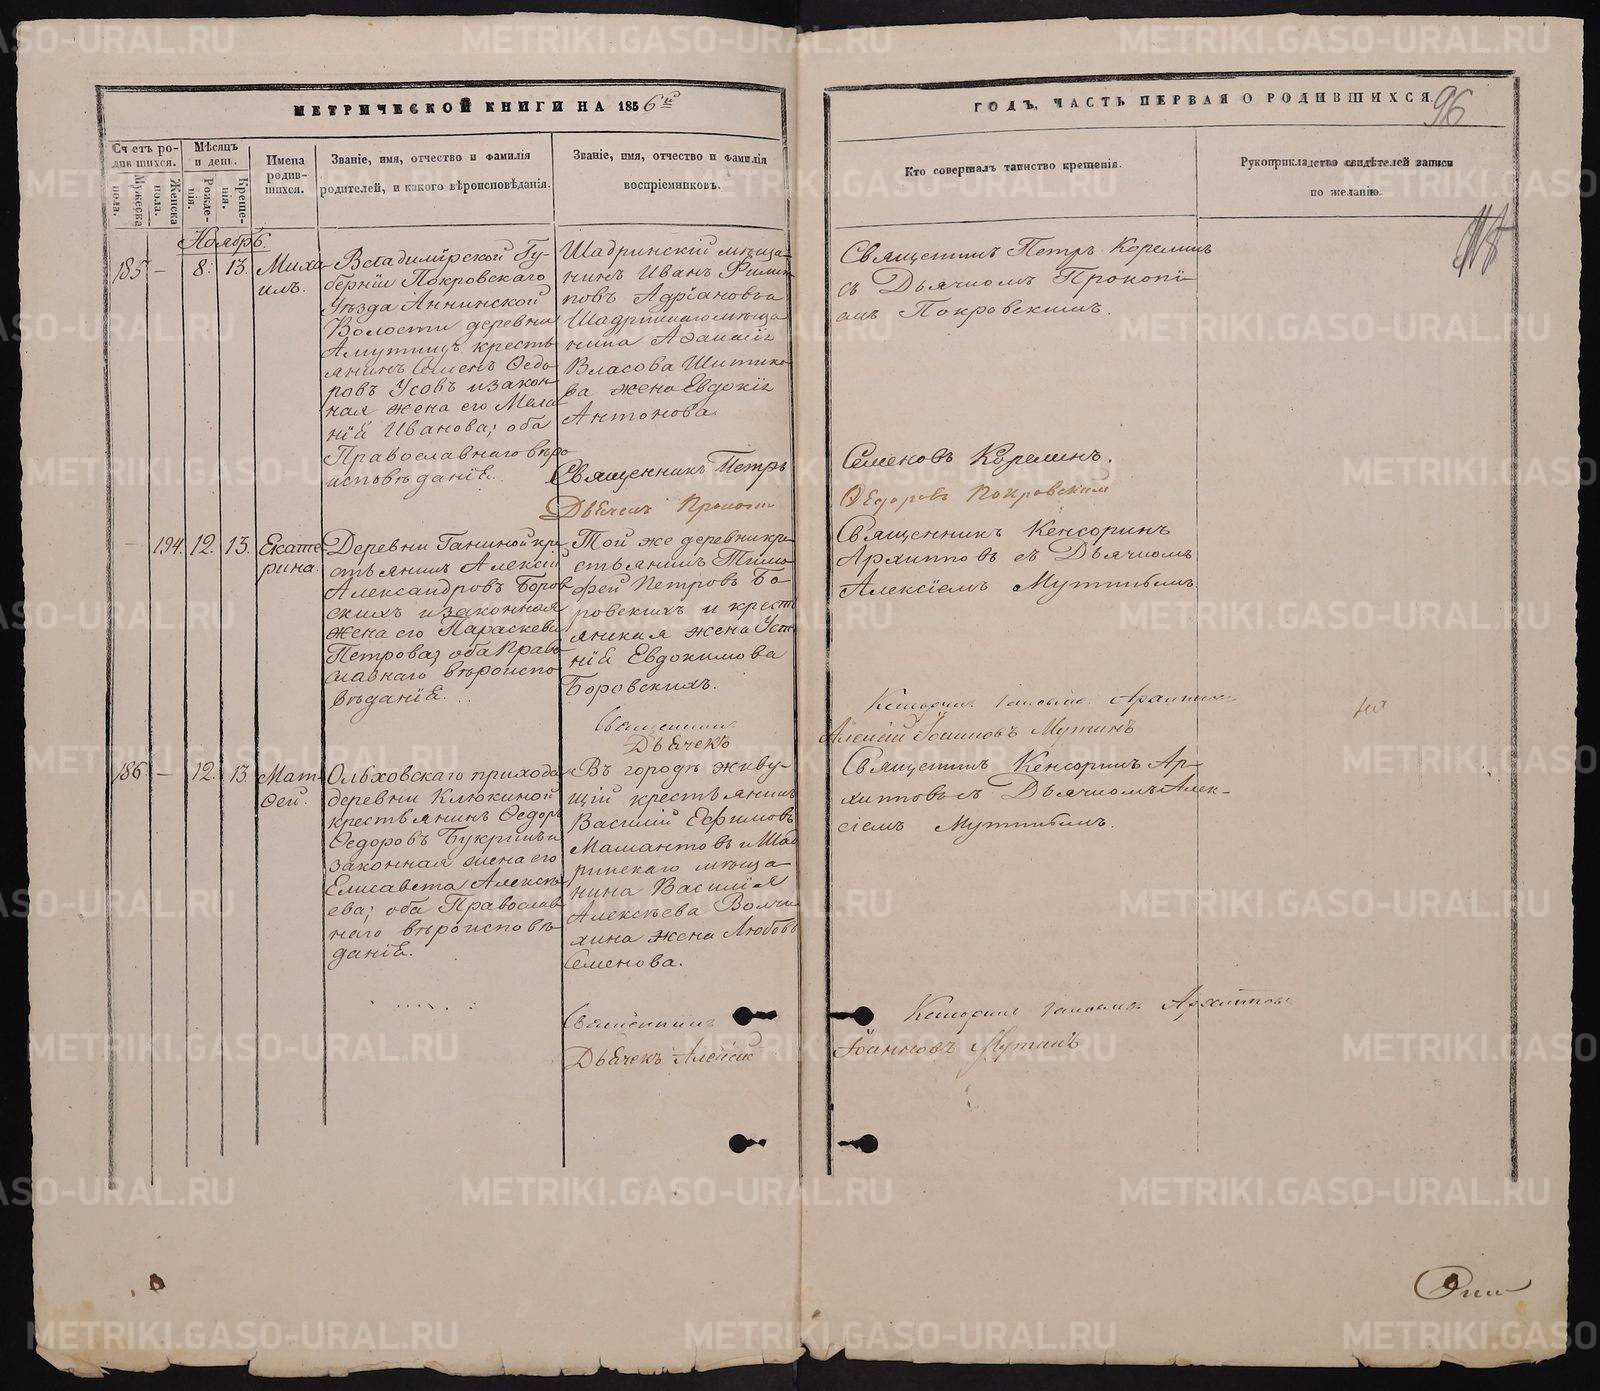 МЕТРИЧЕСКОЙ КНИГИ НА 1856й
ГОДЪ, ЧАСТЬ ПЕРВАЯ О РОДИВШИХСЯ.
96
Счетъ родившихся.
Мужеска пола.
Женска пола.
Мѣсяцъ и день.
Рожденія.
Крещенія.
Имена родившихся.
Званіе, имя, отчество и фамилія
родителей, и какого вѣроисповѣданія.
Званіе, имя, отчество и фамилія
воспріемниковъ.
Кто совершалъ таинство крещенія.
Рукоприкладство свидѣтелей записи
по желанію.
Ноябрь.
185 — 8. 13.
Миха-
илъ.
Владимірской Гу-
берніи Покровскаго
Уѣзда Аннинской
Волости деревни
Амутищъ кресть
янинъ Семенъ Ѳедо
ровъ Усовъ и закон
ная жена его Мела
ній Иванова; оба
Православнаго вѣро
исповѣданія.
Шадринскій мѣща-
нинъ Иванъ Филип
повъ Адріановъ и
Шадринскаго мѣща
нина Аѳанасія
Власова Шитико-
ва жена Евдокія
Антонова.
Священникъ Петръ Корелинъ
съ Дьячкомъ Прокопі-
емъ Покровскимъ.
Священникъ Петръ
Семеновъ Корелинъ.
Дьячекъ
Ѳедоровъ Покровскій
— 194. 12. 13.
Екате
рина.
Деревни Ганиной кре
стьянинъ Алексій
Александровъ Боров
скихъ и законная
жена его Параскева
Петрова; оба Право
славнаго вѣроиспо
вѣданія.
Той же деревни кре-
стьянинъ Тимо
фей Петровъ Бо-
ровскихъ и кресть
янская жена Усти
нія Евдокимова
Боровскихъ.
Священникъ Кенсоринъ
Архиповъ съ Дьячкомъ
Алексіемъ Мутинымъ.
Священникъ
Дьячекъ
Алексій Іоанновъ Мутинъ
186 — 12. 13.
Мат-
ѳей.
Ольховскаго прихода
деревни Клюкиной
крестьянинъ Ѳедоръ
Ѳедоровъ Букринъ и
законная жена его
Елисавета Алексѣ-
ева; оба Православ
наго вѣроисповѣ-
данія.
Въ городѣ живу-
щій крестьянинъ
Василій Ефимовъ
Мамантовъ и Шад
ринскаго мѣща-
нина Василія
Алексѣева Волчи
хина жена Любовь
Семенова.
Священникъ Кенсоринъ Ар-
хиповъ съ Дьячкомъ Алек-
сіемъ Мутинымъ.
Священникъ
Дьячекъ Алексій
Іоанновъ Мутинъ
METRIKI.GASO-URAL.RU